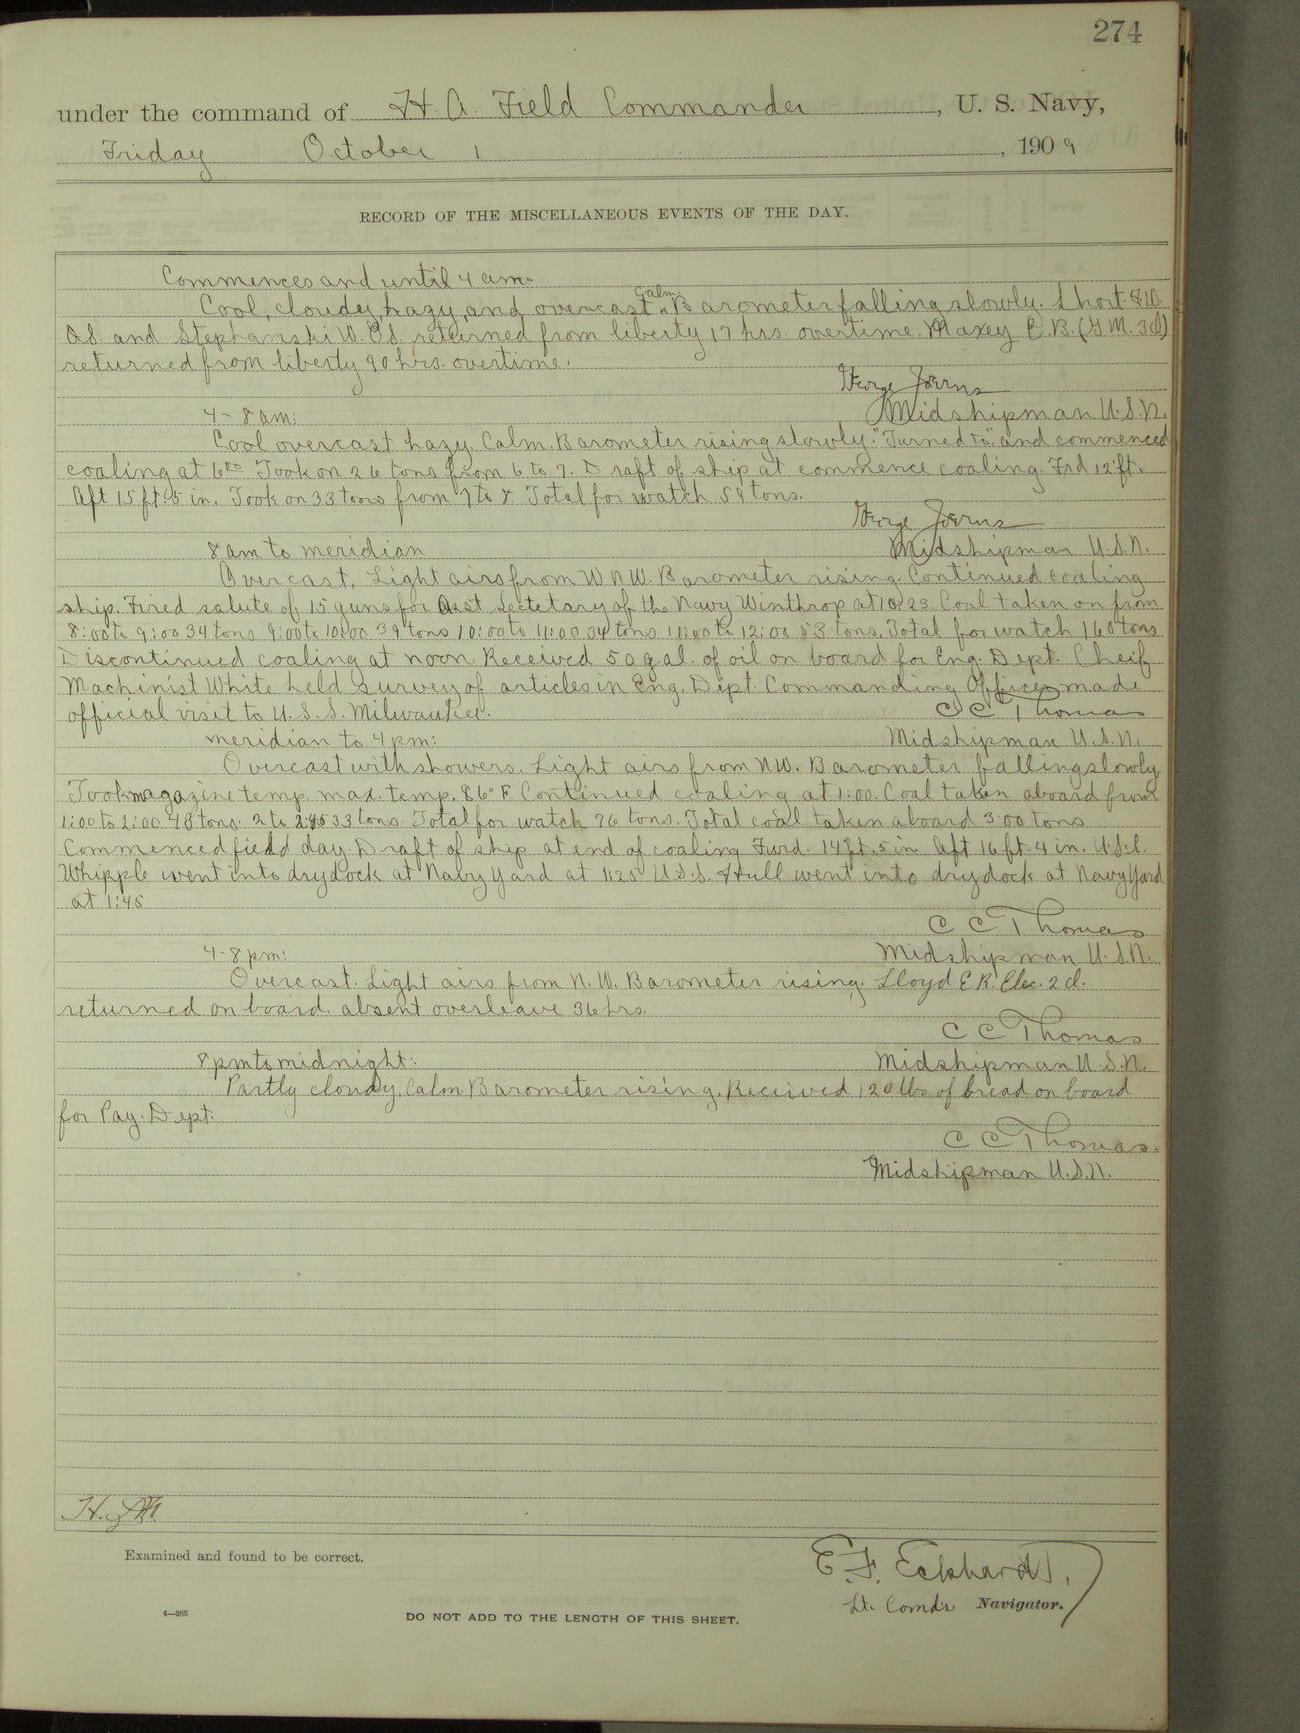 274
under the command of H. A. Field Commander, U. S. Navy,
Friday October 1, 1909
RECORD OF THE MISCELLANEOUS EVENTS OF THE DAY.
Commences and until 4 am.
Cool, cloudy, hazy, and overcast. Calm. Barometer falling slowly. Short
O.S. and Stephanski W. O.S. returned from liberty 17 hrs. overtime. Maxey C.B. (G.M. 3cl)
returned from liberty 90 hrs. overtime.
George Joerns
Midshipman U.S.N.
4-8 am:
Cool overcast hazy. Calm. Barometer rising slowly. "Turned to" and commenced
coaling at 6:00 Took on 26 tons from 6 to 7. Draft of ship at commence coaling. Frd 12 ft.
Aft 15 ft. 5 in. Took on 33 tons from 7 to 8. Total for watch 59 tons.
George Joerns
Midshipman U.S.N.
8 am to meridian
Overcast. Light airs from W.N.W. Barometer rising. Continued coaling
ship. Fired salute of 15 guns for Asst Secretary of the Navy Winthrop at 10:23. Coal taken on from
8:00 to 9:00 34 tons 9:00 to 10:00 39 tons 10:00 to 11:00 34 tons 11:00 to 12:00 53 tons. Total for watch 160 tons
Discontinued coaling at noon. Received 50 gal. of oil on board for Eng. Dept. Cheif
Machinist White held survey of articles in Eng. Dept. Commanding Officer made
official visit to U.S.S. Milwaukee.
C C Thomas
Midshipman U.S.N.
meridian to 4 pm:
Overcast with showers. Light airs from NW. Barometer falling slowly.
Took magazine temp. max. temp. 86° F. Continued coaling at 1:00. Coal taken aboard from
1:00 to 2:00 43 tons. 2 to 2:45 33 tons. Total for watch 76 tons. Total coal taken aboard 300 tons
Commenced field day. Draft of ship at end of coaling Fwrd. 14 ft. 5 in Aft 16 ft. 4 in. U.S.S.
Whipple went into drydock at Navy Yard at 1:20 U.S.S. Hull went into drydock at Navy Yard
at 1:45
C C Thomas
Midshipman U.S.N.
4-8 pm:
Overcast. Light airs from N.W. Barometer rising. Lloyd E.R. Elec. 2 cl.
returned on board. absent overleave 36 hrs.
C C Thomas
Midshipman U.S.N.
8 pm to midnight:
Partly cloudy. Calm. Barometer rising. Received 120 lbs of bread on board
for Pay. Dept.
C C Thomas.
Midshipman U.S.N.
Examined and found to be correct.
E. F. Eckhardt,
Lt. Comdr Navigator.
4—265
DO NOT ADD TO THE LENGTH OF THIS SHEET.